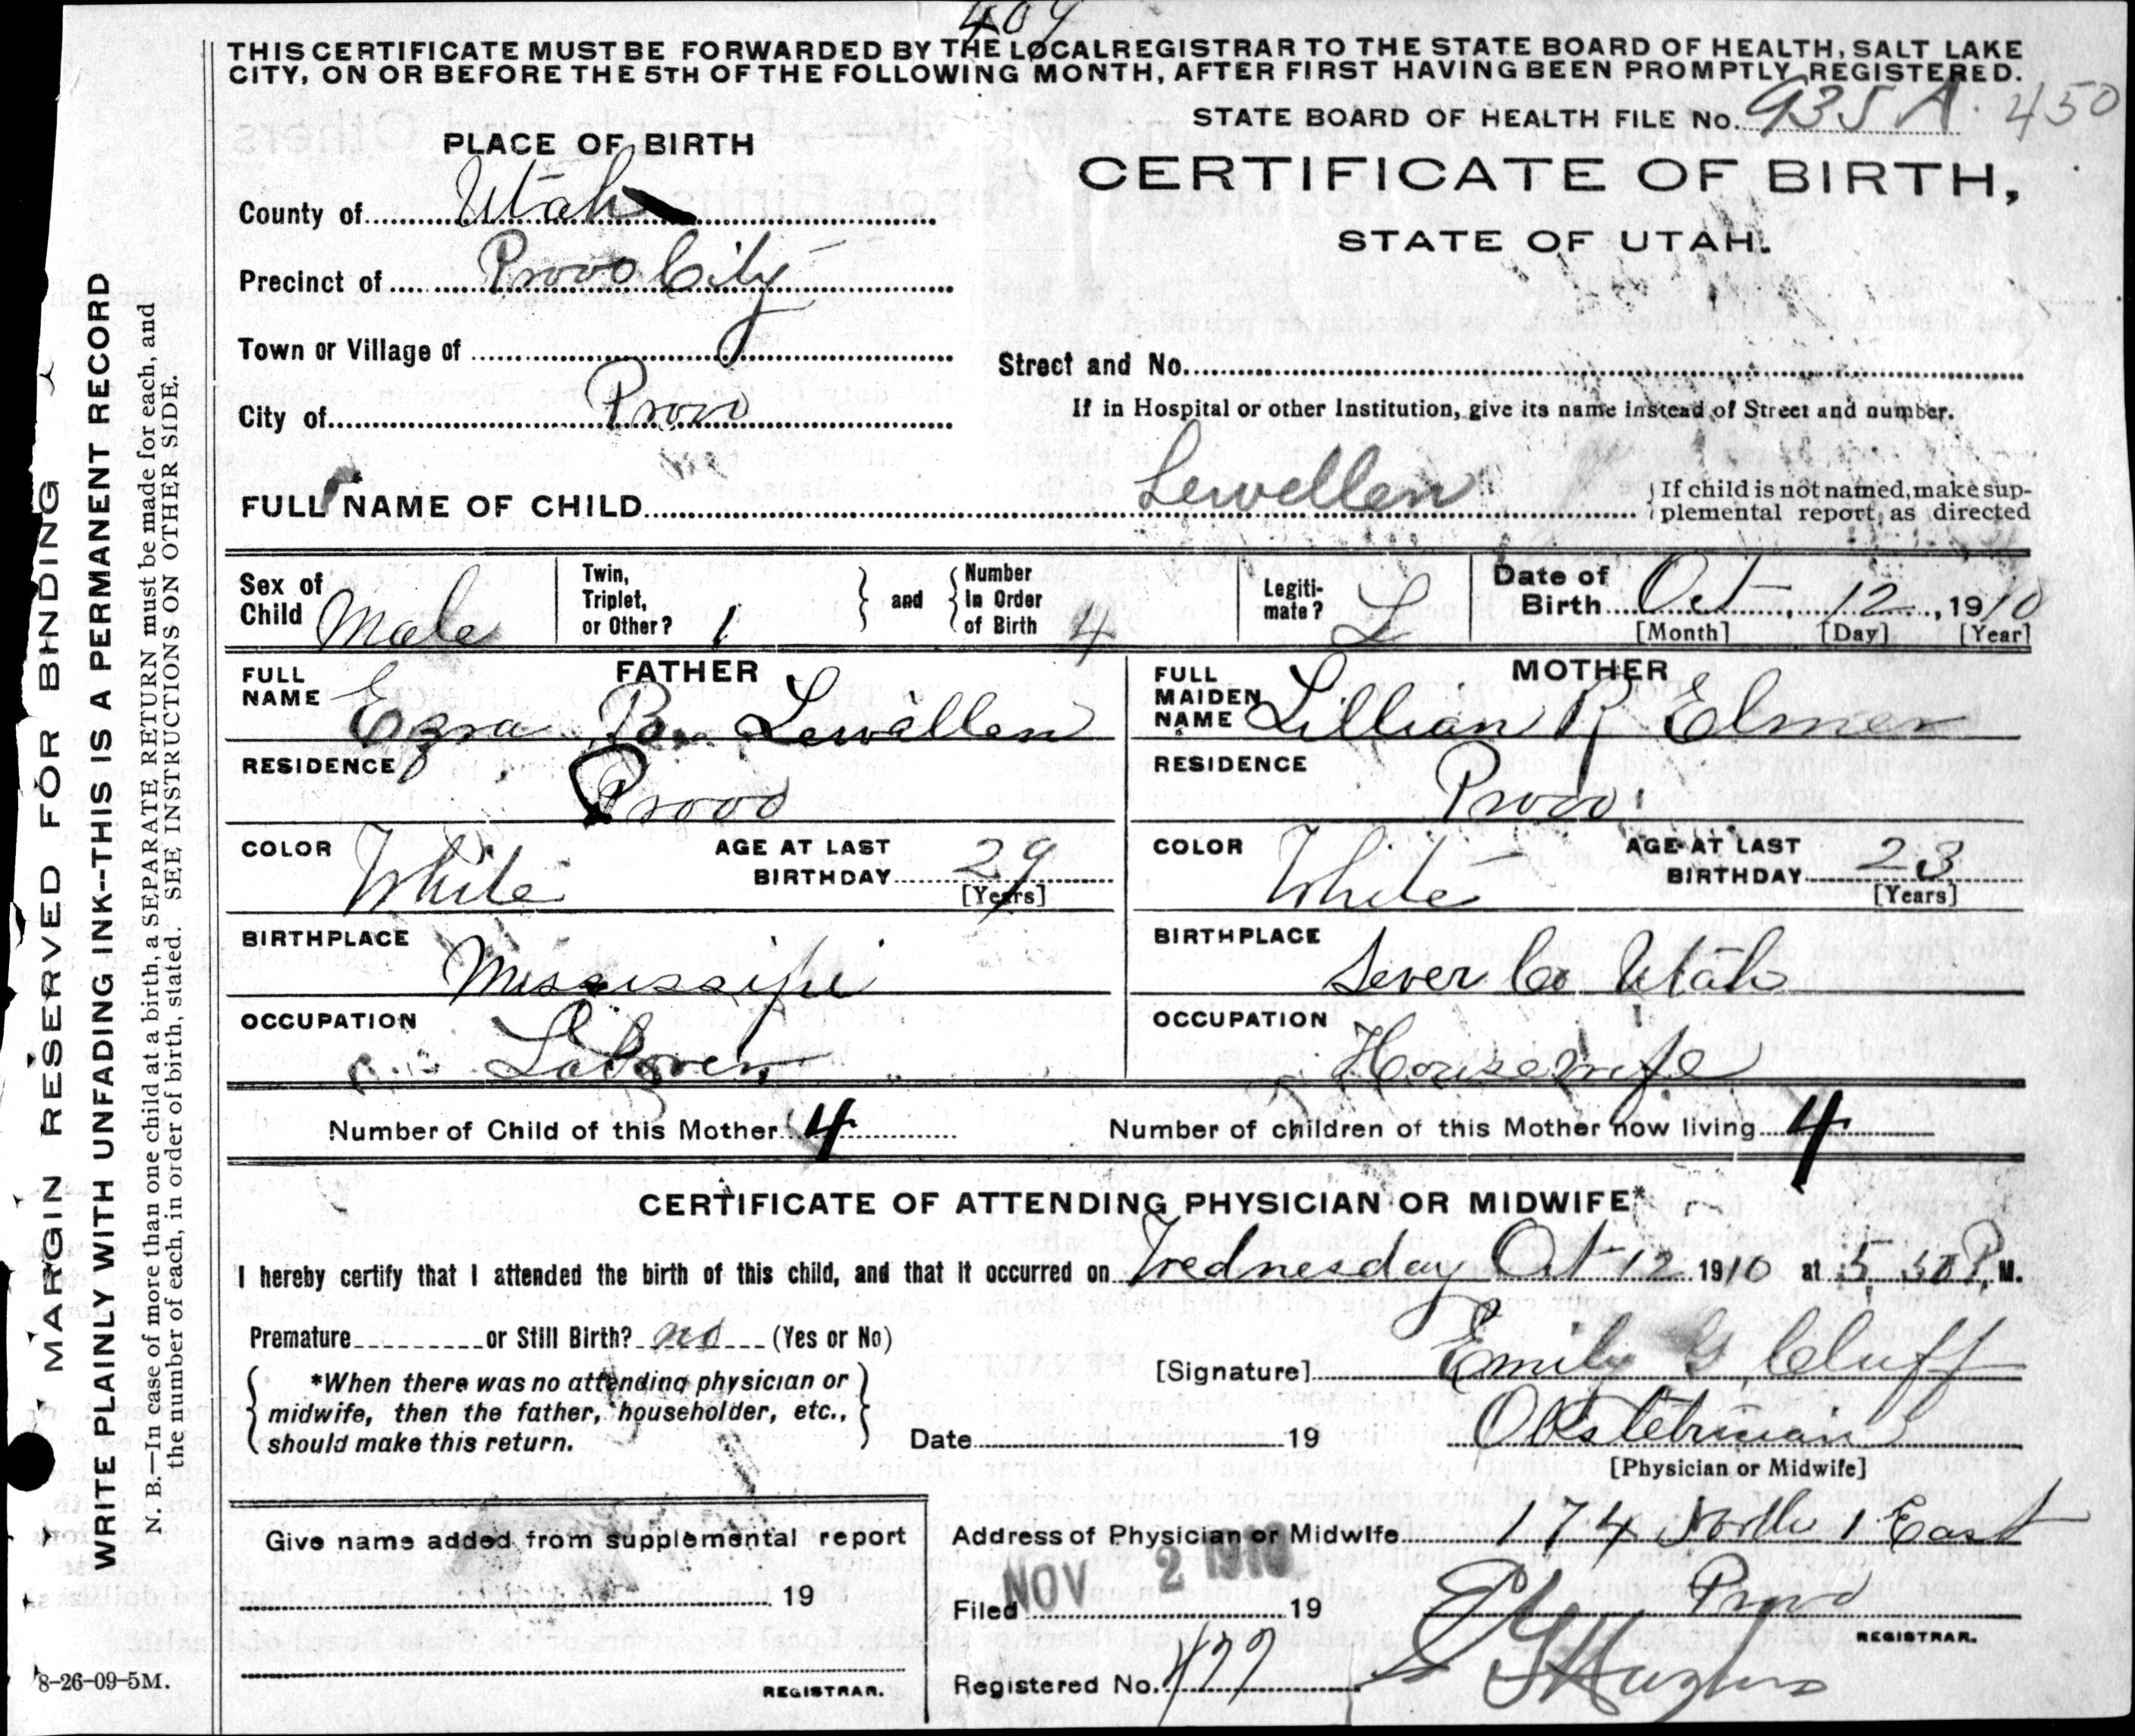 409
THIS CERTIFICATE MUST BE FORWARDED BY THE LOCAL REGISTRAR TO THE STATE BOARD OF HEALTH, SALT LAKE
CITY, ON OR BEFORE THE 5TH OF THE FOLLOWING MONTH, AFTER FIRST HAVING BEEN PROMPTLY REGISTERED.
STATE BOARD OF HEALTH FILE No. 935 A. 450
PLACE OF BIRTH
CERTIFICATE OF BIRTH,
STATE OF UTAH.
County of Utah
Precinct of Provo City
Town or Village of
Street and No.
City of Provo
If in Hospital or other Institution, give its name instead of Street and number.
FULL NAME OF CHILD Lewellen
If child is not named, make sup-
plemental report, as directed
Sex of Child Male
Twin, Triplet, or Other? 1
and
Number In Order of Birth 4
Legiti-mate? L
Date of Birth Oct, 12, 1910
[Month] [Day] [Year]
FATHER
FULL NAME Ezra B. Lewallen
RESIDENCE Provo
COLOR White AGE AT LAST BIRTHDAY 29
[Years]
BIRTHPLACE Mississippi
OCCUPATION Laborer
MOTHER
FULL MAIDEN NAME Lillian R Elmer
RESIDENCE Provo
COLOR White AGE AT LAST BIRTHDAY 23
[Years]
BIRTHPLACE Sever Co Utah
OCCUPATION Housewife
Number of Child of this Mother 4 Number of children of this Mother now living 4
CERTIFICATE OF ATTENDING PHYSICIAN OR MIDWIFE*
I hereby certify that I attended the birth of this child, and that it occurred on Wednesday Oct 12 1910 at 5 30 P. M.
Premature or Still Birth? no (Yes or No)
*When there was no attending physician or
midwife, then the father, householder, etc.,
should make this return.
[Signature] Emily G Cluff
Date 19
Obstetrician
[Physician or Midwife]
Give name added from supplemental report
19
REGISTRAR.
Address of Physician or Midwife 174 North 1 East
Provo
Filed NOV 2 1910 19
REGISTRAR.
Registered No. 477
8-26-09-5M.
MARGIN RESERVED FOR BINDING
WRITE PLAINLY WITH UNFADING INK--THIS IS A PERMANENT RECORD
N. B.—In case of more than one child at a birth, a SEPARATE RETURN must be made for each, and
the number of each, in order of birth, stated. SEE INSTRUCTIONS ON OTHER SIDE.